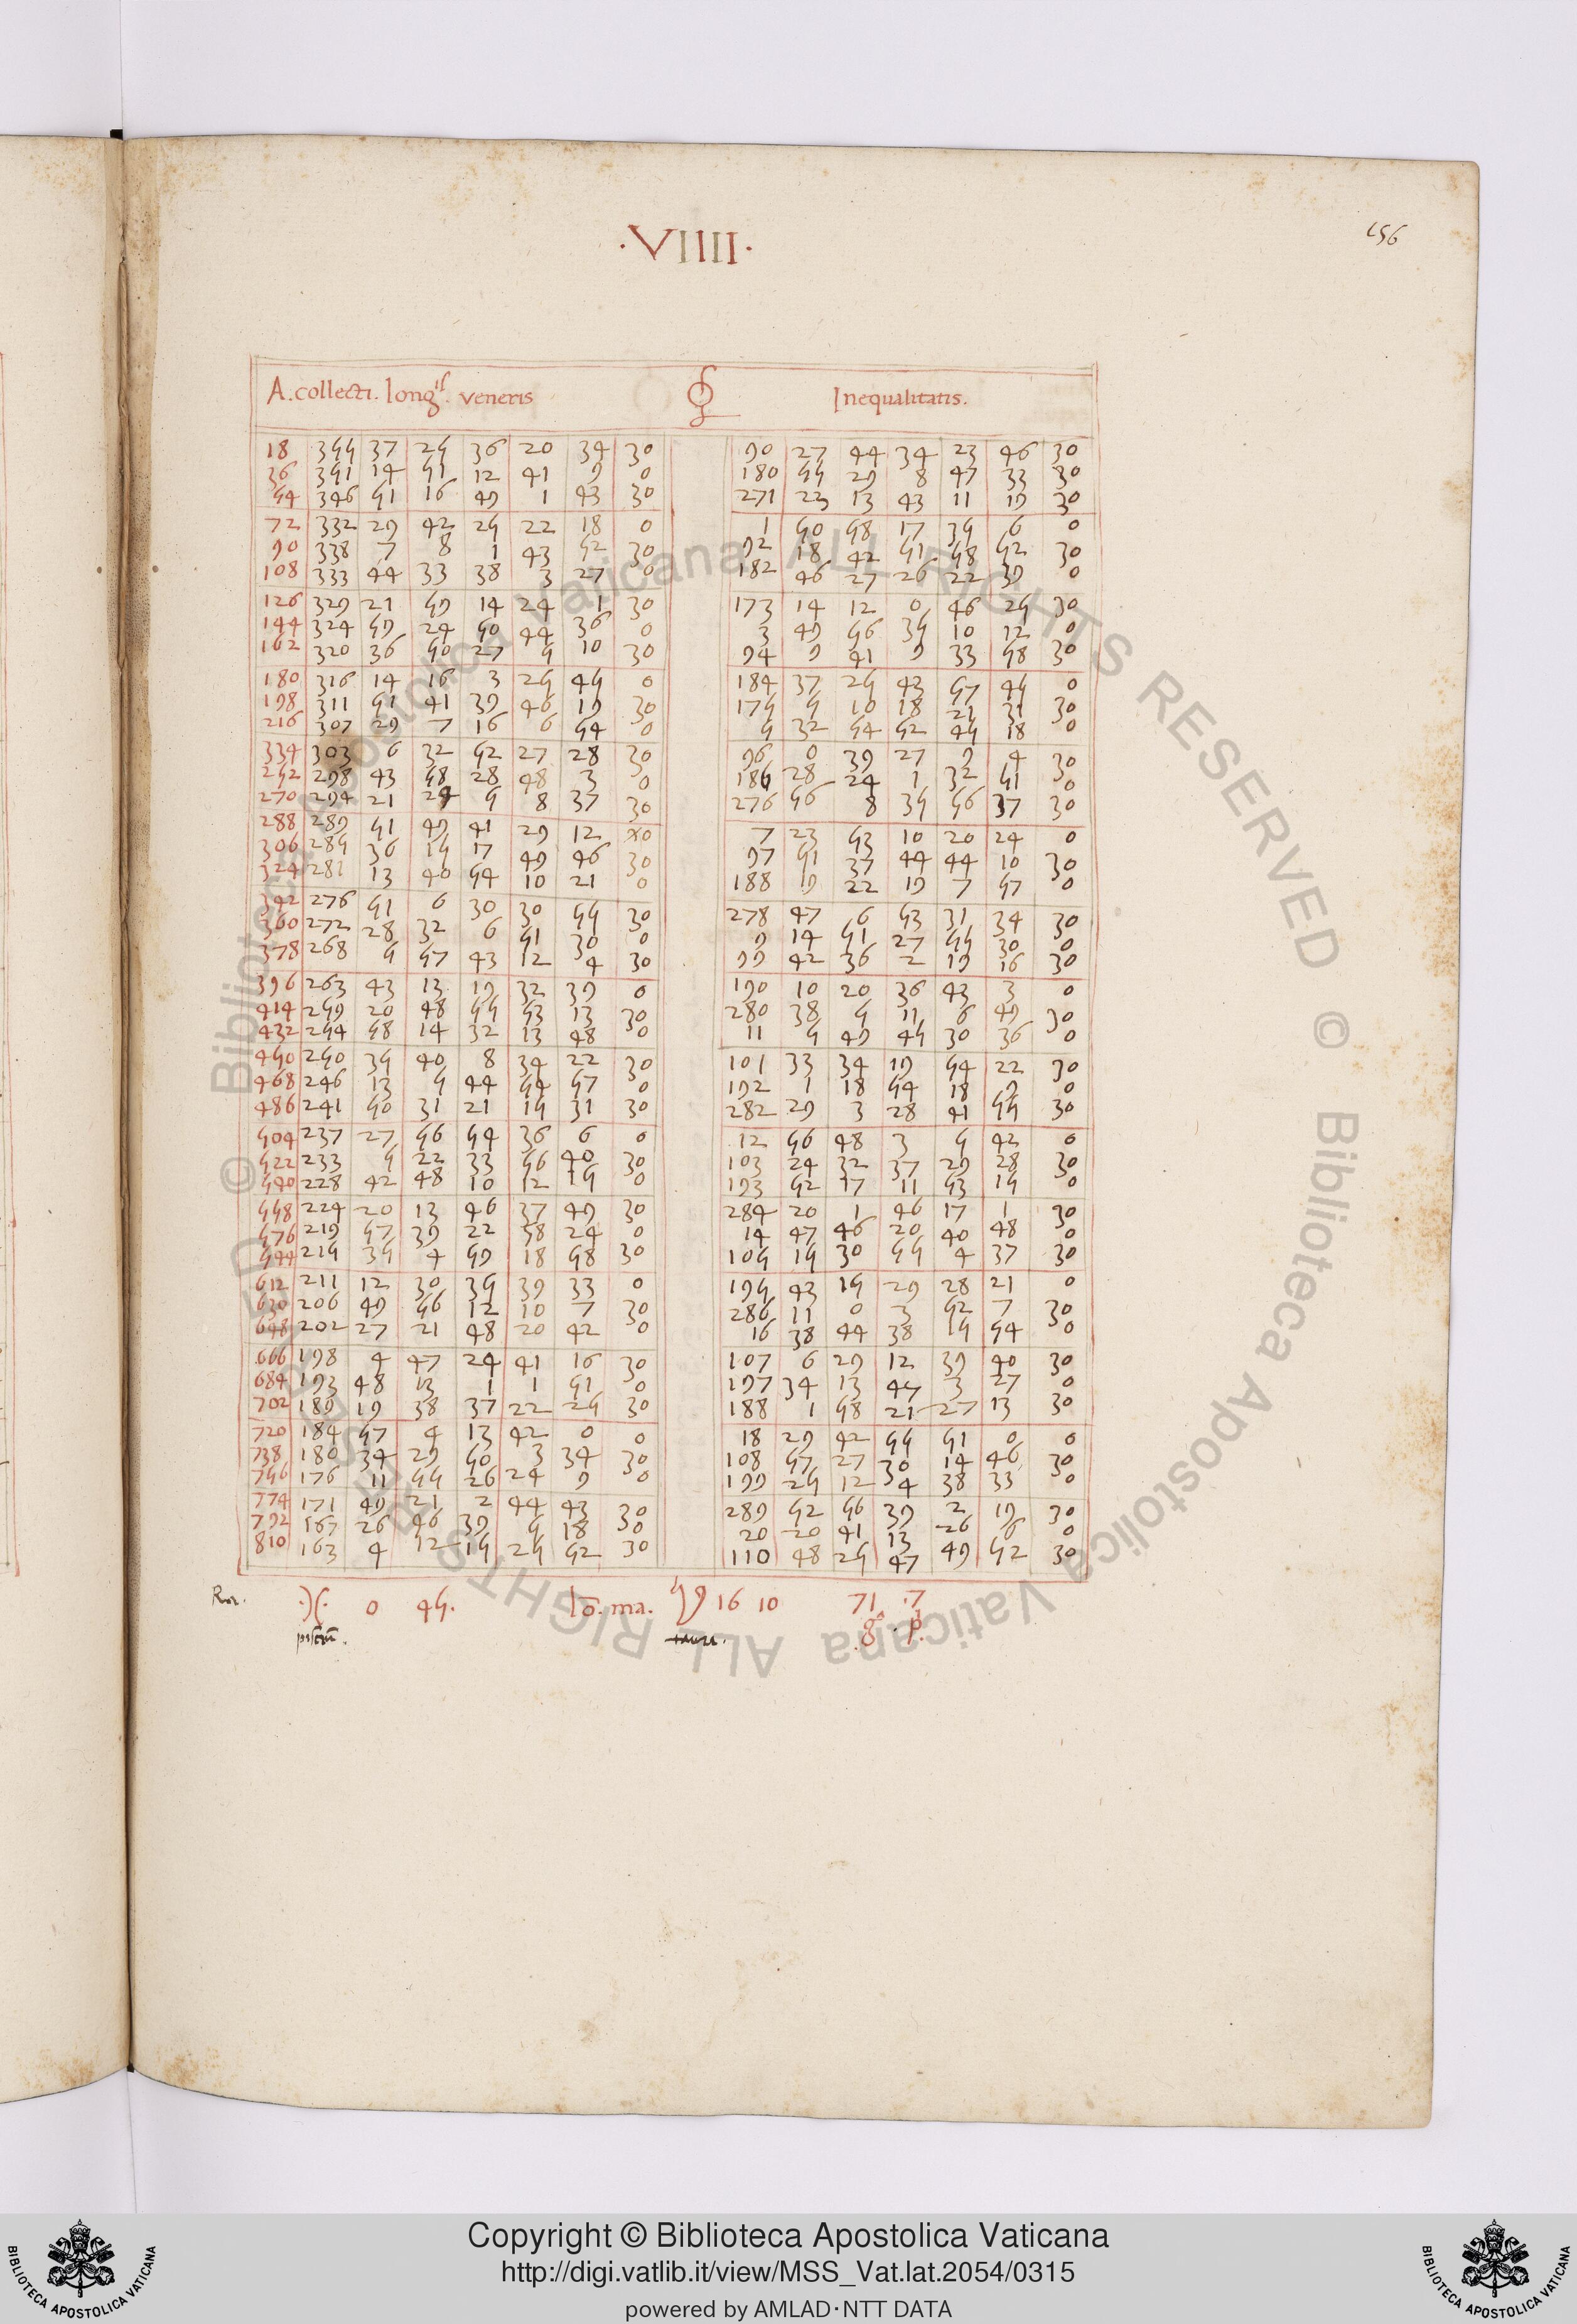 156
·VIIII·
A. collecti. longis. veneris ♀ Inequalitatis.
18 355 37 25 36 20 34 30 90 27 44 34 23 46 30
36 351 14 51 12 41 9 0 180 55 29 8 47 33 30
54 346 51 16 49 1 43 30 271 23 13 43 11 19 30
72 332 29 42 25 22 18 0 1 50 58 17 35 6 0
90 338 7 8 1 43 52 30 92 18 42 51 58 52 30
108 333 44 33 38 3 27 0 182 46 27 26 22 39 0
126 329 21 59 14 24 1 30 173 14 12 0 46 25 30
144 324 59 24 50 44 36 0 3 49 56 35 10 12 0
162 320 36 50 27 5 10 30 94 9 41 9 33 58 30
180 316 14 16 3 25 45 0 184 37 25 43 57 45 0
198 311 51 41 39 46 19 30 175 5 10 18 21 31 30
216 307 29 7 16 6 54 0 5 32 54 52 45 18 0
334 303 6 32 52 27 28 30 96 0 39 27 9 4 30
252 298 43 58 28 48 3 0 186 28 24 1 32 51 0
270 294 21 24 5 8 37 30 276 56 8 35 56 37 30
288 289 51 49 41 29 12 0 7 23 53 10 20 24 0
306 285 36 15 17 49 46 30 97 51 37 44 44 10 30
324 281 13 40 54 10 21 0 188 19 22 19 7 57 0
342 276 51 6 30 30 55 30 278 47 6 53 31 34 30
360 272 28 32 6 51 30 0 9 14 51 27 55 30 0
378 268 5 57 43 12 4 30 99 42 36 2 19 16 30
396 263 43 13 19 32 39 0 190 10 20 36 43 3 0
414 259 20 48 55 53 13 30 280 38 5 11 6 49 30
432 254 58 14 32 13 48 0 11 5 49 45 30 36 0
450 250 35 40 8 34 22 30 101 33 34 19 54 22 30
468 246 13 5 44 54 57 0 192 1 18 54 18 9 0
486 241 50 31 21 15 31 30 282 29 3 28 41 55 30
504 237 27 56 54 36 6 0 12 56 48 3 5 42 0
522 233 5 22 33 56 40 30 103 24 32 37 29 28 30
540 228 42 48 10 12 15 0 193 52 17 11 53 15 0
558 224 20 13 46 37 49 30 284 20 1 46 17 1 30
576 219 57 39 22 58 24 0 14 47 46 20 40 48 0
594 215 35 4 59 18 58 30 105 15 30 55 4 37 30
612 211 12 30 35 39 33 0 195 43 15 29 28 21 0
630 206 49 56 12 10 7 30 286 11 0 3 52 7 30
648 202 27 21 48 20 42 0 16 38 44 38 15 54 0
666 198 4 47 24 41 16 30 107 6 29 12 39 40 30
684 193 48 13 1 1 51 0 197 34 13 47 3 27 0
702 189 19 38 37 22 25 30 188 1 58 21 27 13 30
720 184 57 4 13 42 0 0 18 29 42 55 51 0 0
738 180 34 29 50 3 34 30 108 57 27 30 14 46 30
756 176 11 55 26 24 9 0 199 25 12 4 38 33 0
774 171 49 21 2 44 43 30 289 52 56 39 2 19 30
792 167 26 46 39 5 18 0 20 20 41 13 26 6 0
810 163 4 12 15 25 52 30 110 48 25 47 49 52 30
·)(· 0 45. lō. ma. ♉ 16 10 71 .7
pisciū. tauri. .g. p.
© Biblioteca Apostolica Vaticana ALL RIGHTS RESERVED © Biblioteca Apostolica Vaticana ALL RIGHTS RESERVED
Copyright © Biblioteca Apostolica Vaticana
http://digi.vatlib.it/view/MSS_Vat.lat.2054/0315
powered by AMLAD·NTT DATA
BIBLIOTECA APOSTOLICA VATICANA
BIBLIOTECA APOSTOLICA VATICANA